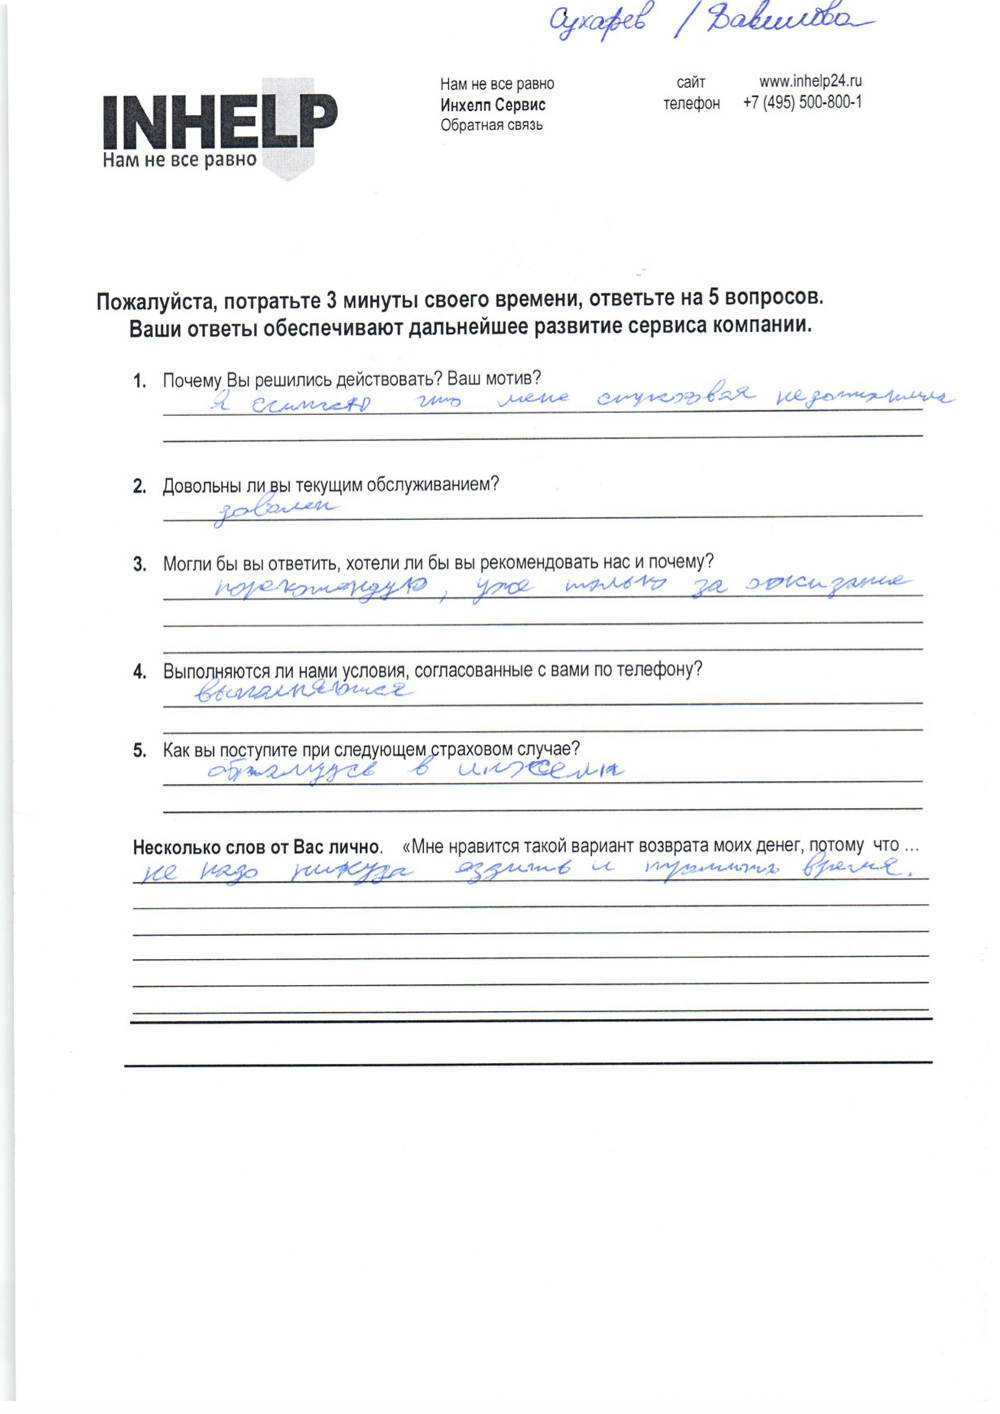 Сухарев / Вавилова
INHELP
Нам не все равно
Нам не все равно
Инхелп Сервис
Обратная связь
сайт www.inhelp24.ru
телефон +7 (495) 500-800-1
Пожалуйста, потратьте 3 минуты своего времени, ответьте на 5 вопросов.
Ваши ответы обеспечивают дальнейшее развитие сервиса компании.
1. Почему Вы решились действовать? Ваш мотив?
Я считаю что мене страховая недоплатила
2. Довольны ли вы текущим обслуживанием?
доволен
3. Могли бы вы ответить, хотели ли бы вы рекомендовать нас и почему?
порекомендую, уже только за
4. Выполняются ли нами условия, согласованные с вами по телефону?
выполняются
5. Как вы поступите при следующем страховом случае?
обращусь в инхелп
Несколько слов от Вас лично. «Мне нравится такой вариант возврата моих денег, потому что ...
не надо никуда ездить и тратить время.